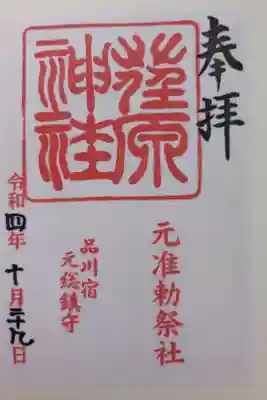 奉拝
荏原神社
元准勅祭社
品川宿
元総鎮守
令和四年十月二十九日